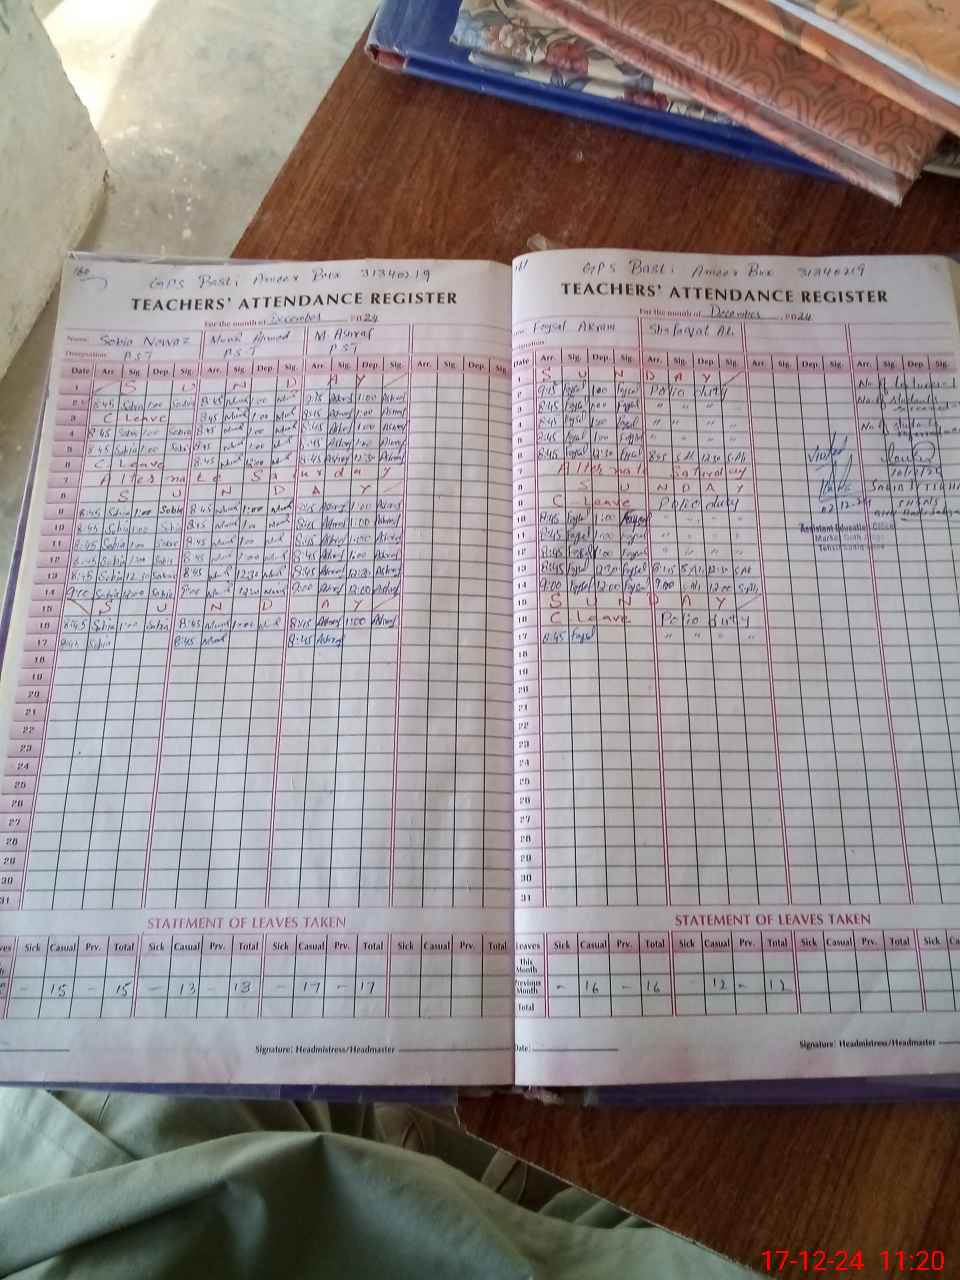 160
GPS Basti Ameer Bux 31340219
TEACHERS' ATTENDANCE REGISTER
For the month of December 2024
Name Sobia Nawaz
M. Ashraf
Designation PST PST PST
Date Arr. Sig. Dep. Sig. Arr. Sig. Dep. Sig. Arr. Sig. Dep. Sig. Arr. Sig. Dep. Sig.
1 S U N D A Y
2 8:45 Sobia 1:00 Sobia 8:45 1:00 8:45 Ashraf 1:00 Ashraf
3 C Leave 8:45 1:00 8:45 Ashraf 1:00 Ashraf
4 8:45 Sobia 1:00 Sobia 8:45 1:00 8:45 Ashraf 1:00 Ashraf
5 8:45 Sobia 1:00 Sobia 8:45 1:00 8:45 Ashraf 1:00 Ashraf
6 C Leave 8:45 12:30 8:45 Ashraf 12:30 Ashraf
7 Alternate Saturday
8 S U N D A Y
9 8:45 Sobia 1:00 Sobia 8:45 1:00 8:45 Ashraf 1:00 Ashraf
10 8:45 Sobia 1:00 Sobia 8:45 8:45 Ashraf 1:00 Ashraf
11 8:45 Sobia 1:00 Sobia 8:45 1:00 8:45 Ashraf 1:00 Ashraf
12 8:45 Sobia 1:00 Sobia 8:45 1:00 8:45 Ashraf 1:00 Ashraf
13 8:45 Sobia 12:30 Sobia 8:45 12:30 8:45 Ashraf 12:30 Ashraf
14 9:00 Sobia 12:00 Sobia 9:00 9:00 Ashraf 12:00 Ashraf
15 S U N D A Y
16 8:45 Sobia 1:00 Sobia 8:45 1:00 8:45 Ashraf 1:00 Ashraf
17 8:45 Sobia 8:45 8:45 Ashraf
18
19
20
21
22
23
24
25
26
27
28
29
30
31
STATEMENT OF LEAVES TAKEN
Sick Casual Prv. Total Sick Casual Prv. Total Sick Casual Prv. Total Sick Casual Prv. Total
- 15 - 15 - 13 - 13 - 17 - 17
Signature: Headmistress/Headmaster
161
GPS Basti Ameer Bux 31340219
TEACHERS' ATTENDANCE REGISTER
For the month of December 2024
Faysal Akram Shafaqat Ali
Arr. Sig. Dep. Sig. Arr. Sig. Dep. Sig. Arr. Sig. Dep. Sig. Arr. Sig. Dep. Sig.
1 S U N D A Y
2 8:45 Faysal 1:00 Faysal Polio duty
3 8:45 Faysal 1:00 Faysal " " " "
4 8:45 Faysal 1:00 Faysal " " " "
5 8:45 Faysal 1:00 Faysal " " " "
6 8:45 Faysal 12:30 Faysal 8:45 S.Ali 12:30 S.Ali
7 Alternate Saturday
8 S U N D A Y
9 C Leave Polio duty
10 8:45 Faysal 1:00 Faysal " " " "
11 8:45 Faysal 1:00 Faysal " " " "
12 8:45 Faysal 1:00 Faysal " " " "
13 8:45 Faysal 12:30 Faysal 8:45 S.Ali 12:30 S.Ali
14 9:00 Faysal 12:00 Faysal 9:00 S.Ali 12:00 S.Ali
15 S U N D A Y
16 C Leave Polio duty
17 8:45 Faysal " " " "
18
19
20
21
22
23
24
25
26
27
28
29
30
31
Visited
Assistant Education Officer
STATEMENT OF LEAVES TAKEN
Leaves Sick Casual Prv. Total Sick Casual Prv. Total Sick Casual Prv. Total Sick
This Month
Previous Month - 16 - 16 - 12 - 12
Total
Date:
Signature: Headmistress/Headmaster
17-12-24 11:20